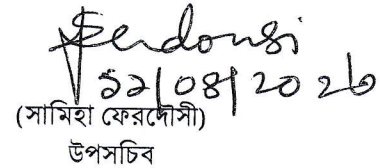 Ferdousi
১২/০৪/২০২৬
(সামিহা ফেরদৌসী)
উপসচিব